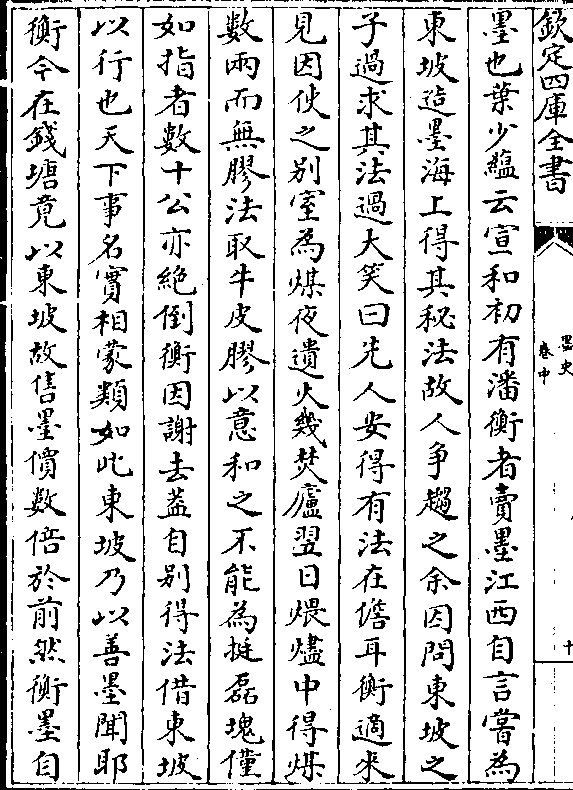 欽定四庫全書
墨史
卷中
十
墨也葉少藴云宣和初有潘衡者賣墨江西自言嘗為
東坡造墨海上得其秘法故人爭趨之余因問東坡之
子過求其法過大笑曰先人安得有法在儋耳衡適來
見因使之别室為煤夜遺火幾焚廬翌日煨燼中得煤
數兩而無膠法取牛皮膠以意和之不能為挺磊塊僅
如指者數十公亦絶倒衡因謝去葢自别得法借東坡
以行也天下事名實相蒙類如此東坡乃以善墨聞耶
衡今在錢塘竟以東坡故售墨價數倍於前然衡墨自